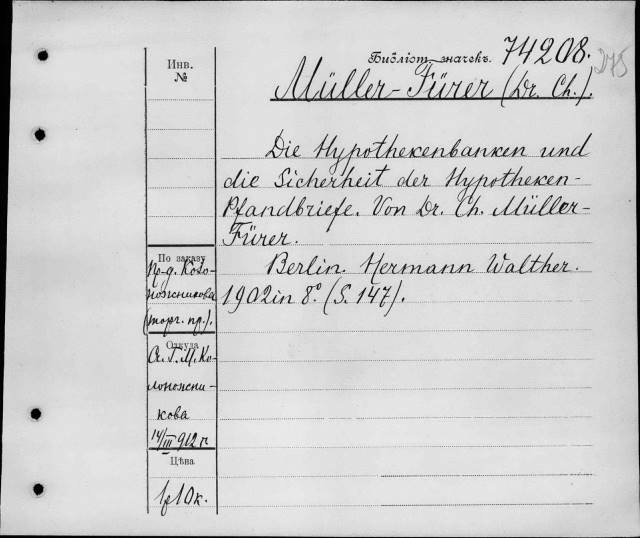 Инв.
№
Библіот. значекъ. 74208.
275
Müller-Fürer (Dr. Ch.).
Die Hypothekenbanken und
die Sicherheit der Hypotheken-
Pfandbriefe. Von Dr. Ch. Müller-
Fürer.
Berlin. Hermann Walther.
1902 in 8.º (S. 147).
По заказу
(торг. пр.).
Откуда
кова
14/III 912 г
Цѣна
1р 10 к.